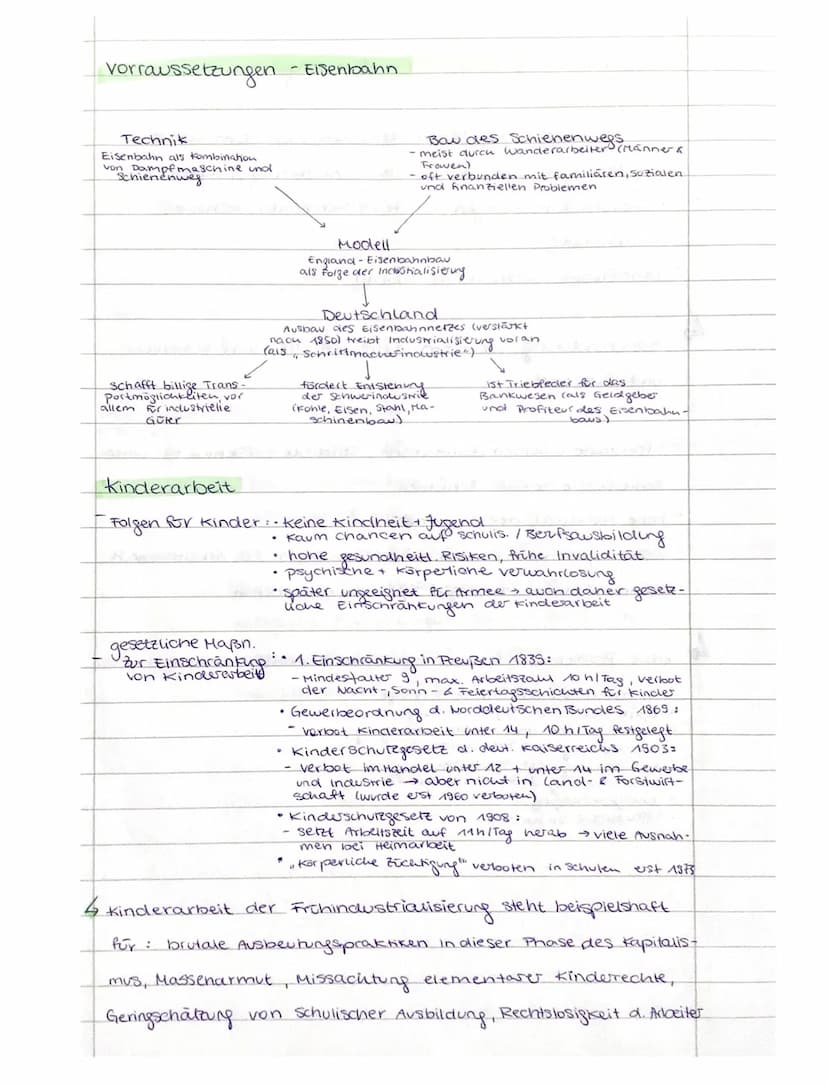 Vorraussetzungen - Eisenbahn
Technik
Eisenbahn als Kombination
von Dampfmaschine und
Schienenweg
Bau des Schienenwegs
- meist durch Wanderarbeiter (Männer &
Frauen)
- oft verbunden mit familiären, sozialen
und finanziellen Problemen
Modell
England - Eisenbahnbau
als Folge der Industrialisierung
Deutschland
Ausbau des Eisenbahnnetzes (verstärkt
nach 1850) treibt Industrialisierung voran
(als „Schrittmacherindustrie")
schafft billige Trans-
portmöglichkeiten, vor
allem für industrielle
Güter
fördert Entstehung
der Schwerindustrie
(Kohle, Eisen, Stahl, Ma-
schinenbau)
ist Triebfeder für das
Bankwesen (als Geldgeber
und Profiteur des Eisenbahn-
baus)
Kinderarbeit
- Folgen für Kinder: • keine Kindheit + Jugend
• kaum Chancen auf schulis. / Berufsausbildung
• hohe gesundheitl. Risiken, frühe Invalidität
• psychische + körperliche Verwahrlosung
• später ungeeignet für Armee → auch daher gesetz-
liche Einschränkungen der Kinderarbeit
gesetzliche Maßn.
- zur Einschränkung : • 1. Einschränkung in Preußen 1839:
von Kinderarbeit
- Mindestalter 9, max. Arbeitszahl 10 h/Tag, Verbot
der Nacht-, Sonn- & Feiertagsschichten für Kinder
• Gewerbeordnung d. Norddeutschen Bundes 1869:
- Verbot Kinderarbeit unter 14, 10 h/Tag festgelegt
• Kinderschutzgesetz d. deut. Kaiserreichs 1903:
- Verbot im Handel unter 12 + unter 14 im Gewerbe
und Industrie → aber nicht in Land- & Forstwirt-
schaft (wurde erst 1960 verboten)
• Kinderschutzgesetz von 1908:
- setzt Arbeitszeit auf 11h/Tag herab → viele Ausnah-
men bei Heimarbeit
• „körperliche Züchtigung" verboten in Schulen erst 1973
↳ Kinderarbeit der Frühindustrialisierung steht beispielshaft
für: brutale Ausbeutungspraktiken in dieser Phase des Kapitalis-
mus, Massenarmut, Missachtung elementarer Kinderrechte,
Geringschätzung von Schulischer Ausbildung, Rechtslosigkeit d. Arbeiter